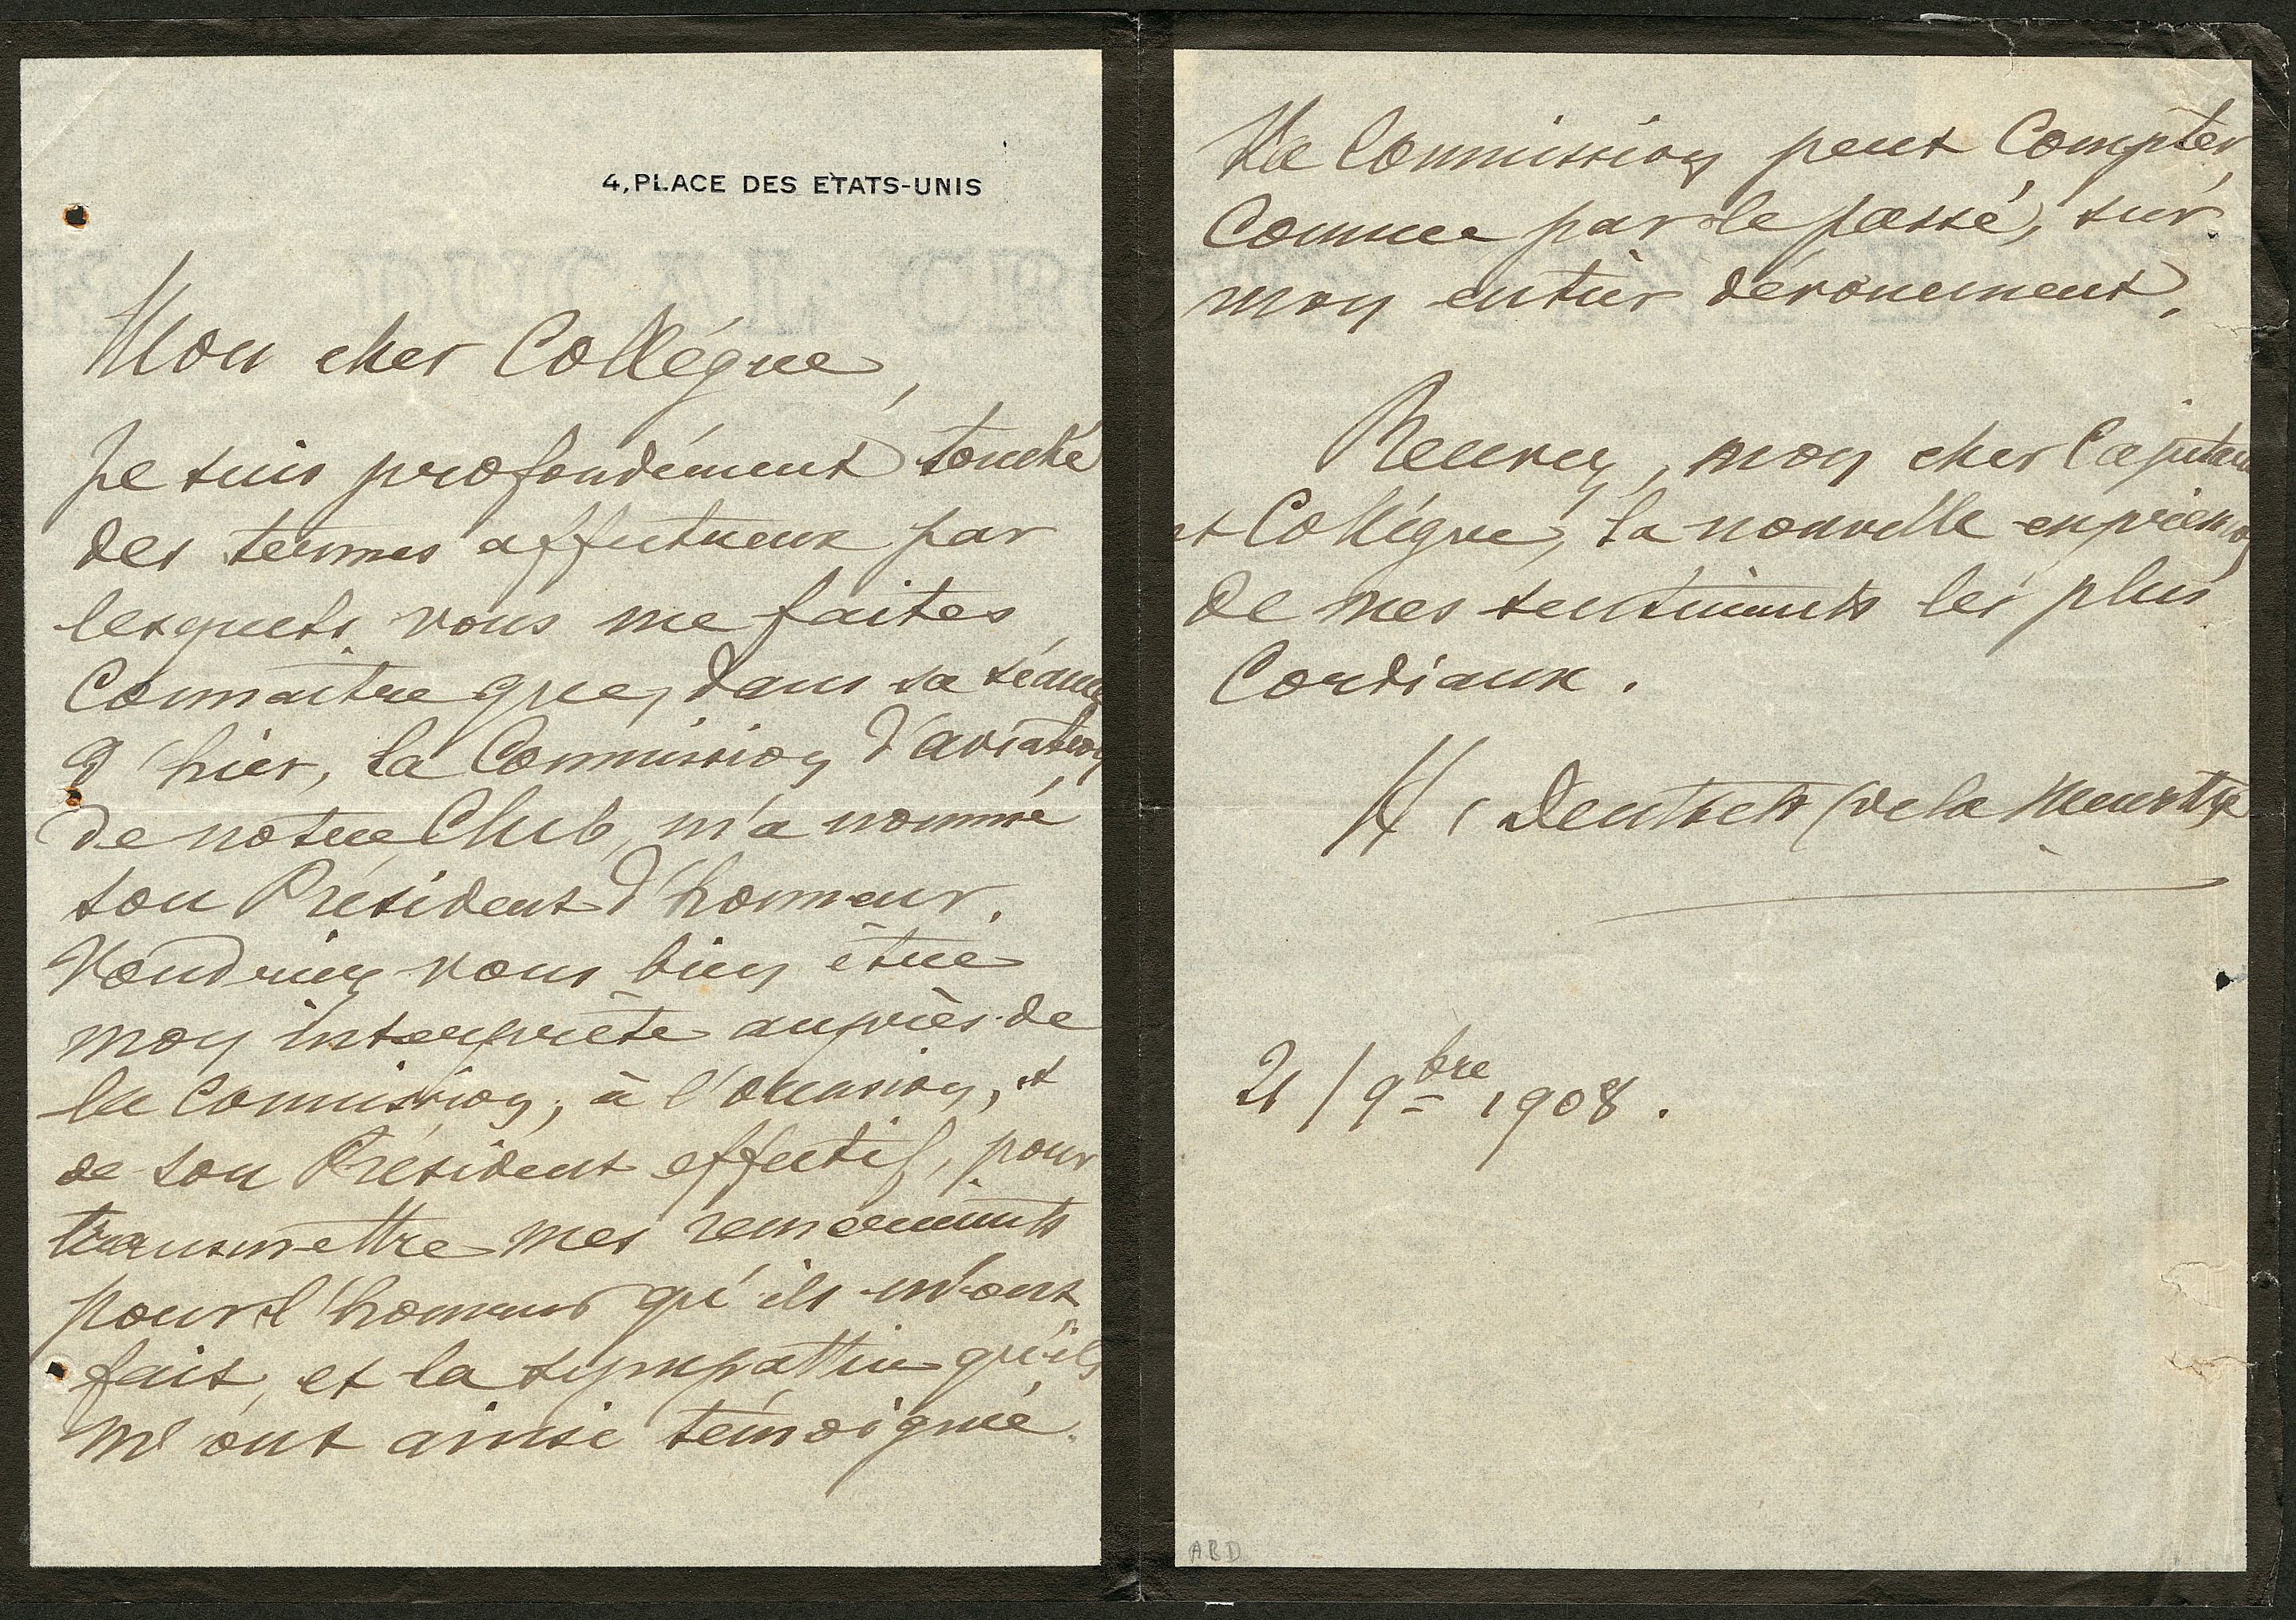 4, PLACE DES ETATS-UNIS
Mon cher Collègue,
Je suis profondément touché
des termes affectueux par
lesquels vous me faites
Connaître que, dans sa séance
d'hier, la Commission d'aviation
de notre Club, m'a nommé
son Président d'honneur.
Voudriez vous bien être
mon interprète auprès de
la Commission, à l'occasion, et
de son Président effectif, pour
transmettre mes remerciements
pour l'honneur qu'ils m'ont
fait, et la sympathie qu'ils
m'ont ainsi témoignée.
La Commission peut Compter,
Comme par le passé, sur
mon entier dévouement.
Recevez, mon cher Capitaine
et Collègue, la nouvelle expression
de mes sentiments les plus
Cordiaux.
H. Deutsch (de la Meurthe
21/9bre 1908.
ABD